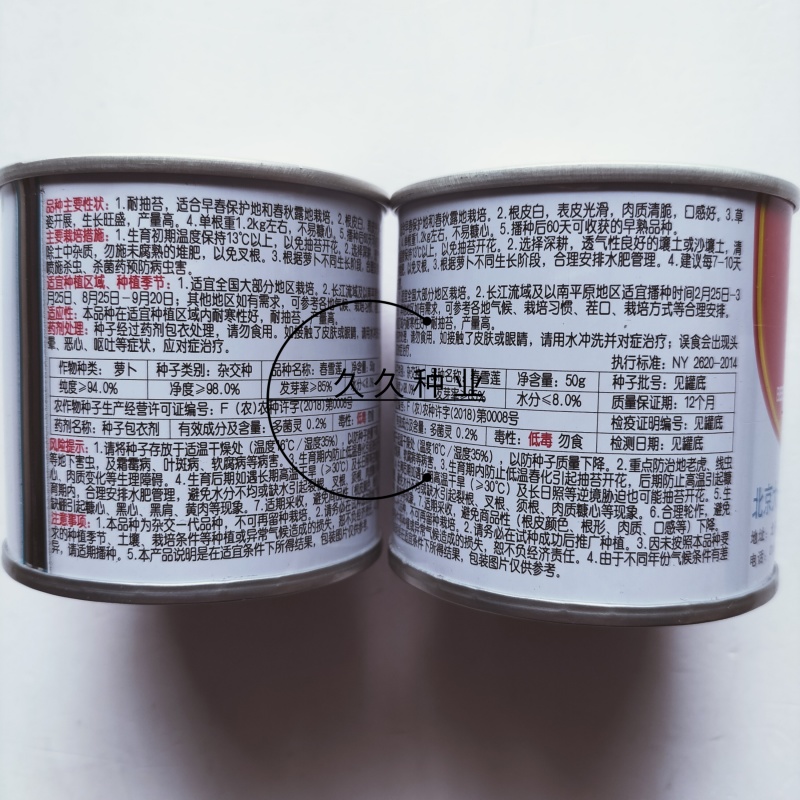 品种主要性状：1.耐抽苔，适合早春保护地和春秋露地栽培。2.根皮白，
姿开展，生长旺盛，产量高。4.单根重1.2kg左右，不易糠心。
主要栽培措施：1.生育初期温度保持13℃以上，以免抽苔开花。2.选择深
除土中杂质，勿施未腐熟的堆肥，以免叉根。3.根据萝卜不同生长阶段，
喷施杀虫、杀菌药预防病虫害。
适宜种植区域、种植季节：1.适宜全国大部分地区栽培。2.长江流域及以南
月25日、8月25日－9月20日；其他地区如有需求，可参考各地气候、
适应性：本品种在适宜种植区域内耐寒性好，耐抽苔，产量高。
药剂处理：种子经过药剂包衣处理，请勿食用。如接触了皮肤或眼睛，请用水
晕、恶心、呕吐等症状，应对症治疗。
作物种类：萝卜 种子类别：杂交种 品种名称：春雪莲
纯度≥94.0% 净度≥98.0% 发芽率≥85%
农作物种子生产经营许可证编号：F（农）农种许字(2018)第0008号
药剂名称：种子包衣剂 有效成分及含量：多菌灵 0.2% 毒性：低毒
风险提示：1.请将种子存放于适温干燥处（温度16℃/湿度35%），
等地下害虫，及霜霉病、叶斑病、软腐病等病害。
心、肉质变化等生理障碍。4.生育后期如遇长期高温干旱（≥30℃）及长日
育期内，合理安排水肥管理，避免水分不均或缺水引起
缺硼引起糠心、黑心、黑肩、黄肉等现象。7.适期采收，避免
注意事项：1.本品种为杂交一代品种，不可再留种栽培。2.请务必在试种
求的种植季节、土壤、栽培条件等种植或异常气候造成的损失，恕不负
异，请适期播种。5.本产品说明是在适宜条件下所得结果，包装图片仅供
保护地和春秋露地栽培。2.根皮白，表皮光滑，肉质清脆，口感好。3.草
根重1.2kg左右，不易糠心。5.播种后60天可收获的早熟品种。
13℃以上，以免抽苔开花。2.选择深耕，透气性良好的壤土或沙壤土，清
以免叉根。3.根据萝卜不同生长阶段，合理安排水肥管理。4.建议每7-10天
全国大部分地区栽培。2.长江流域及以南平原地区适宜播种时间2月25日-3
需求，可参考各地气候、栽培习惯、茬口、栽培方式等合理安排。
耐抽苔，产量高。
请勿食用。如接触了皮肤或眼睛，请用水冲洗并对症治疗；误食会出现头
执行标准：NY 2620-2014
春雪莲 净含量：50g 种子批号：见罐底
水分≤8.0% 质量保证期：12个月
F（农）农种许字(2018)第0008号 检疫证明编号：见罐底
多菌灵 0.2% 毒性：低毒 勿食 检测日期：见罐底
（温度16℃/湿度35%），以防种子质量下降。2.重点防治地老虎、线虫
3.生育期内防止低温春化引起抽苔开花，后期防止高温引起糠
高温干旱（≥30℃）及长日照等逆境胁迫也可能抽苔开花。5.生
缺水引起裂根、叉根、须根、肉质糠心等现象。6.合理轮作，避免
7.适期采收，避免商品性（根皮颜色、根形、肉质、口感等）下降。
不可再留种栽培。2.请务必在试种成功后推广种植。3.因未按照本品种要
气候造成的损失，恕不负经济责任。4.由于不同年份气候条件有差
条件下所得结果，包装图片仅供参考。
久久种业
北京
地址：
电话：